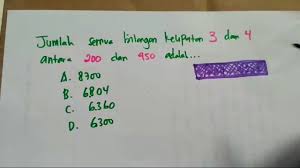 Jumlah semua bilangan kelipatan 3 dan 4
antara 200 dan 450 adalah...
A. 8700
B. 6804
C. 6360
D. 6300